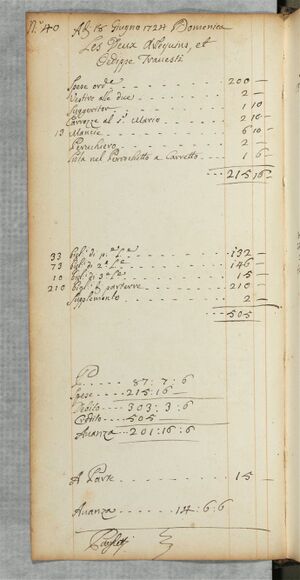 N.º 40 Adj 18 Giugno 1724 Domenica
Les Deux Arlequins, et
Oedippe Travesti
Spese ord.e 200 —
Vestro alle due 2 —
Suggeritor 1 10
Carrozze al S.r Mario 2 16
13 Mancie 6 10
Peruchiero 2 —
nel Perrochetto a Carretto 1 6
215 16 —
33 bigl: di p.e L.e 132 —
73 bigl: di 2.e L.e 146 —
10 bigl: di 3.e L.e 15 —
210 bigl: di parterre 210 —
Supplemento 2 —
505
87 : 7 : 6
Spese 215 : 16 —
Debito 303 : 3 : 6
Credito 505
Avanza 201 : 16 : 6
A Parte 15 —
Avanza 14 : 6 : 6